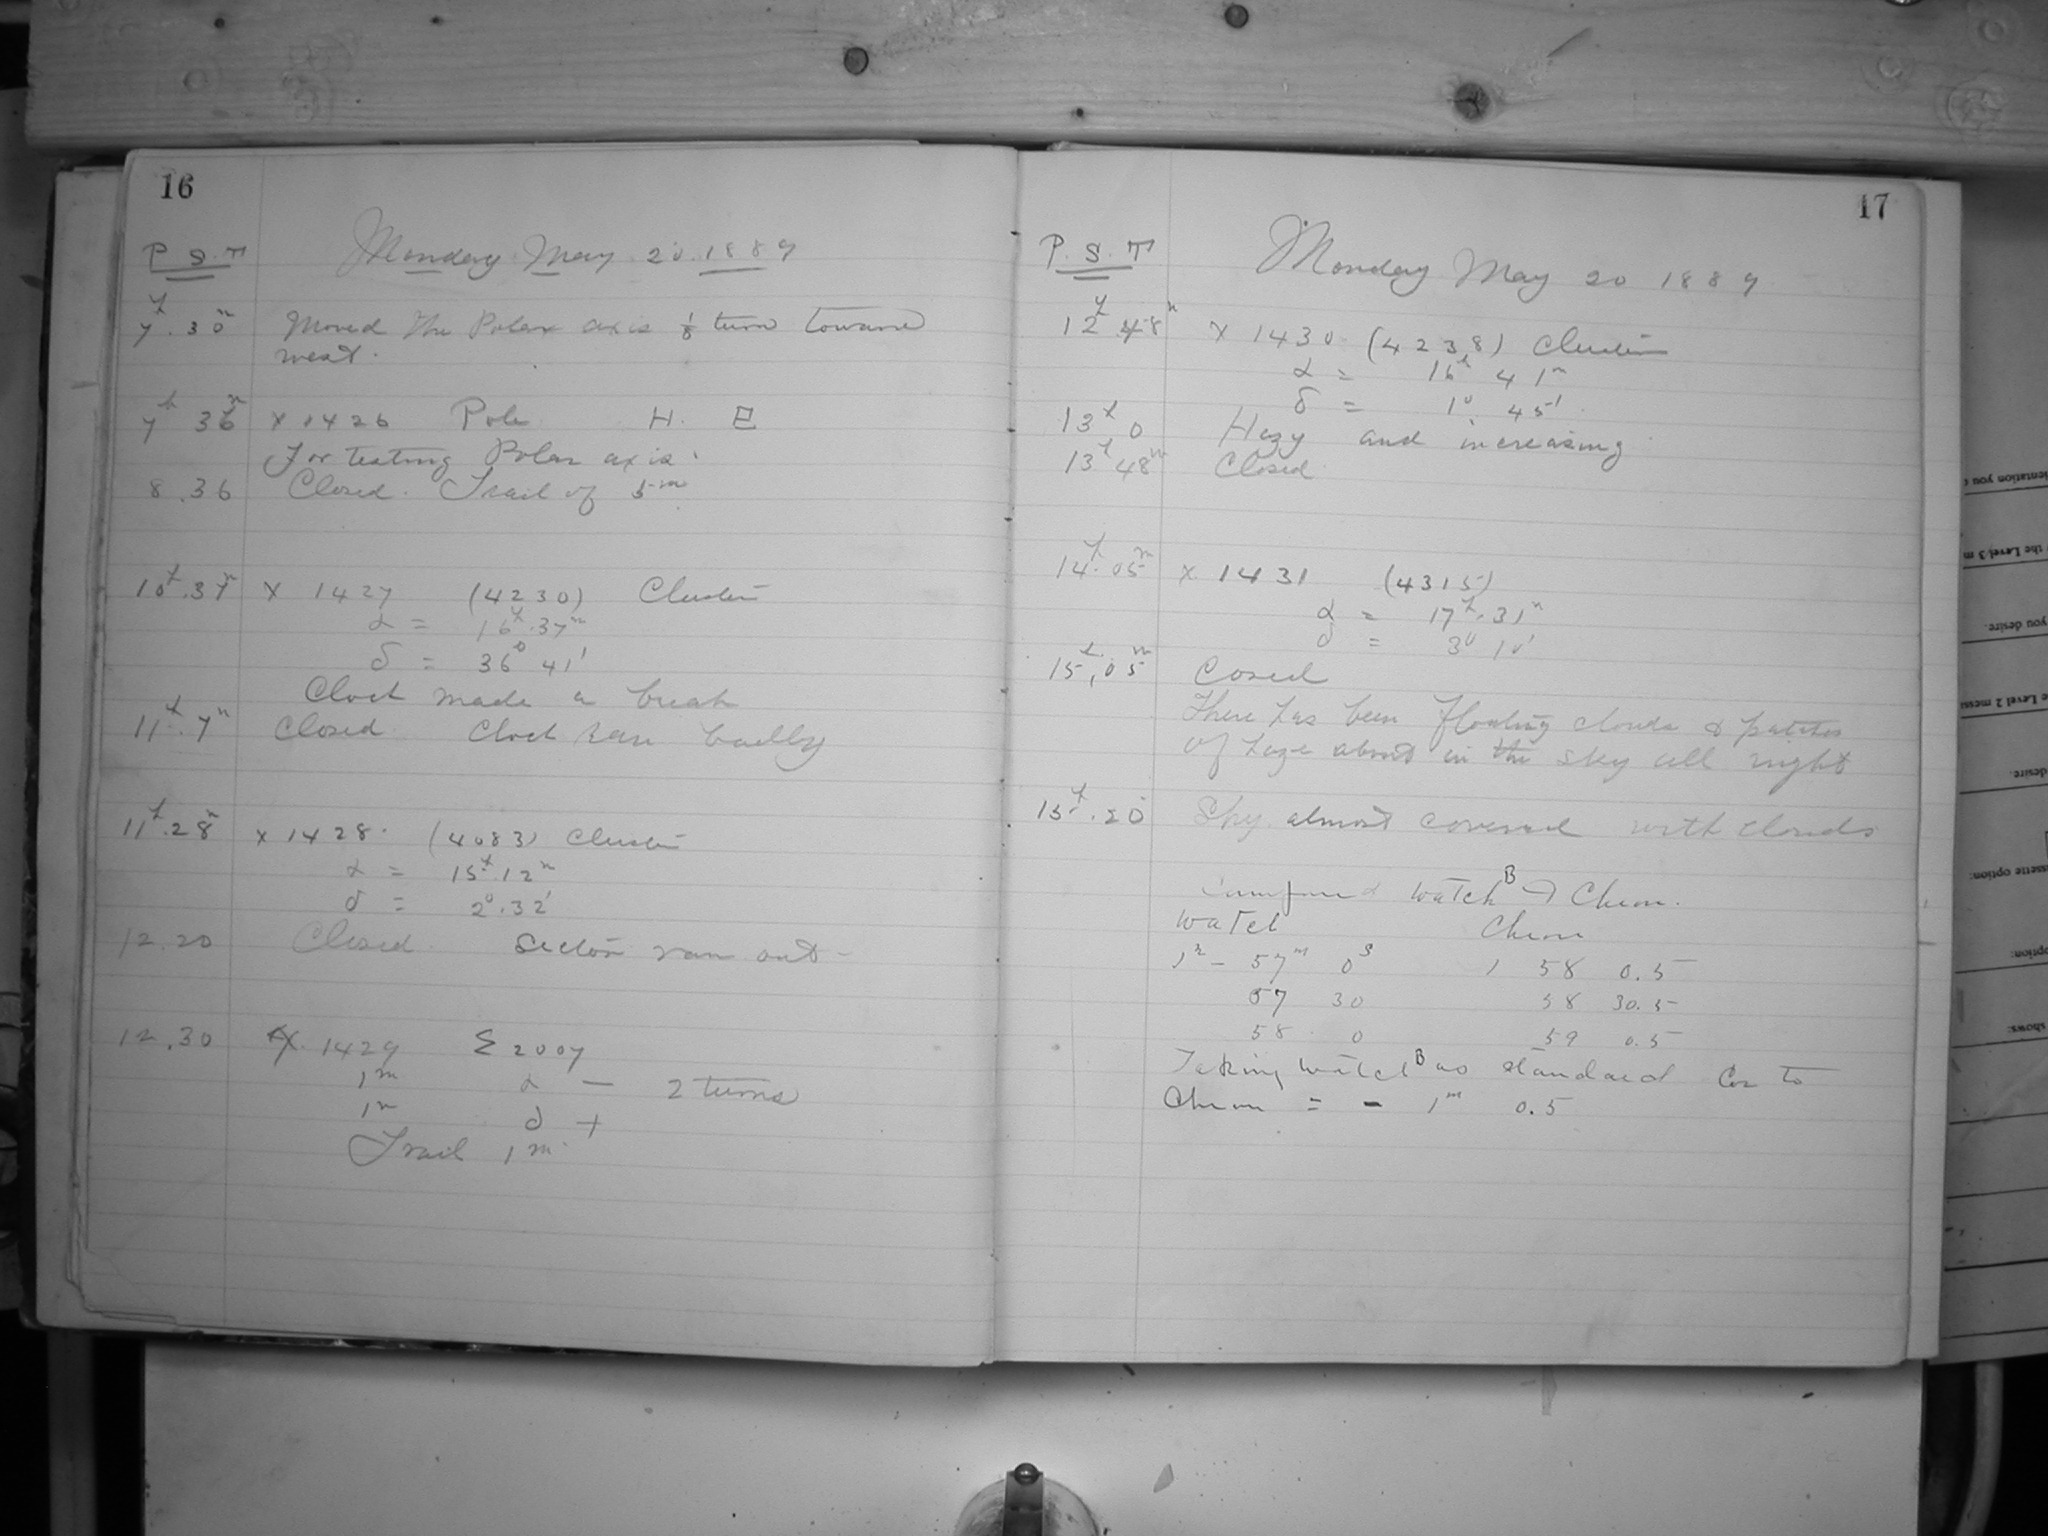 16
P. S. T
Monday May 20 1889
7h.30m Moved the Polar axis 1/8 turn toward
west.
7h 36m X 1426 Pole H. E
For testing Polar axis.
8.36 Closed. Trail of 5m
10h.37m X 1427 (4230) Cluster
α = 16h.37m
δ = 36° 41'
Clock made a break
11h.7m Closed Clock ran badly
11h.28m X 1428. (4083) Cluster
α = 15h.12m
δ = 2°.32'
12.20 Closed. Sector ran out-
12.30 X. 1429 Σ 2007
1m α — 2 turns
1m δ +
Trail 1m
17
P. S. T
Monday May 20 1889
12h 48m X 1430. (4238) Cluster
α = 16h 41m
δ = 1°. 45'
13h 0 Hazy and increasing
13h 48m Closed
14h.05m X. 1431 (4315)
α = 17h.31m
δ = 3° 10'
15h,05m Cosed
There has been floating clouds & patches
of haze about in the sky all night
15h.20 Sky almost covered with clouds
Compared watch B → Chron.
Watch Chron
1h - 57m 0s 1 58 0.5
57 30 58 30.5
58 0 59 0.5
Taking watch B as standard Cor to
Chron = - 1m 0.5
entation you
the Level 3 m
you desire.
e Level 2 
desire.
ssette option:
option:
shows: